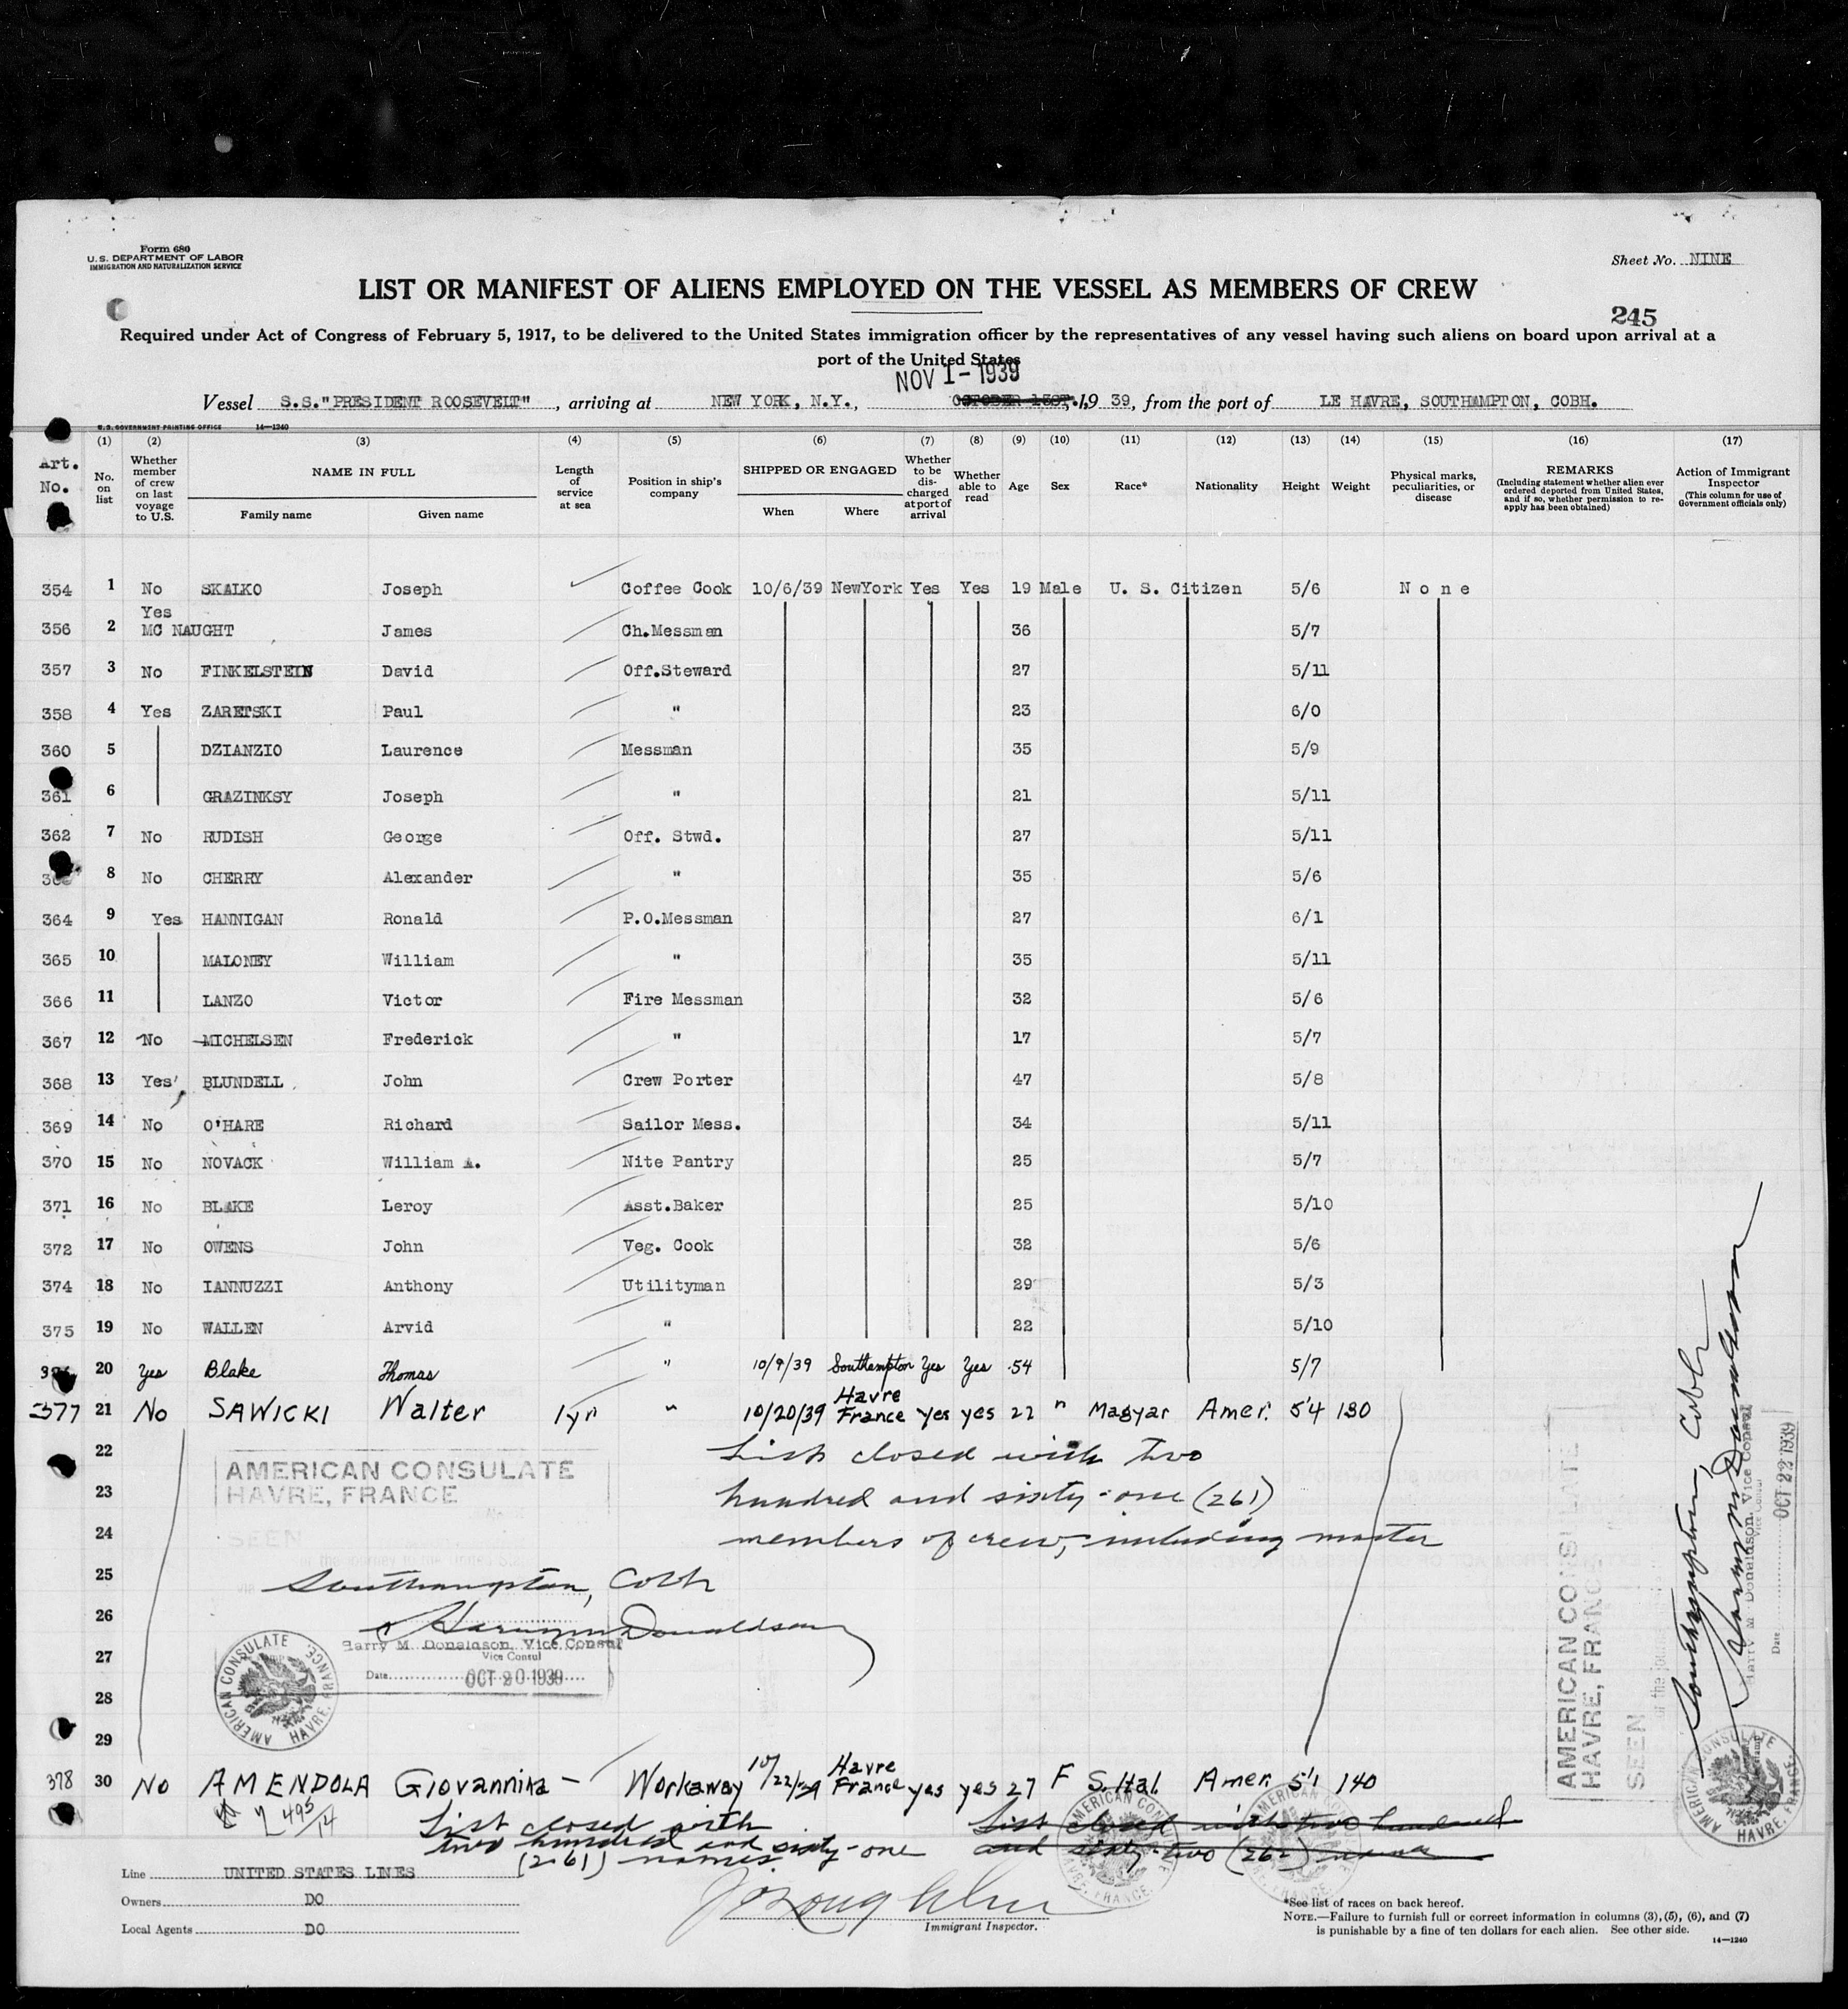 Form 680
U. S. DEPARTMENT OF LABOR
IMMIGRATION AND NATURALIZATION SERVICE
Sheet No. NINE
LIST OR MANIFEST OF ALIENS EMPLOYED ON THE VESSEL AS MEMBERS OF CREW
245
Required under Act of Congress of February 5, 1917, to be delivered to the United States immigration officer by the representatives of any vessel having such aliens on board upon arrival at a
port of the United States
NOV 1 - 1939
Vessel S.S."PRESIDENT ROOSEVELT", arriving at NEW YORK, N.Y., OCTOBER 31ST, 1939, from the port of LE HAVRE, SOUTHAMPTON, COBH.
U.S. GOVERNMENT PRINTING OFFICE 14—1240
(1) (2) (3) (4) (5) (6) (7) (8) (9) (10) (11) (12) (13) (14) (15) (16) (17)
Art. No.
No. on list
Whether member of crew on last voyage to U.S.
NAME IN FULL
Family name Given name
Length of service at sea
Position in ship's company
SHIPPED OR ENGAGED
When Where
Whether to be discharged at port of arrival
Whether able to read
Age
Sex
Race*
Nationality
Height
Weight
Physical marks, peculiarities, or disease
REMARKS
(Including statement whether alien ever ordered deported from United States, and if so, whether permission to reapply has been obtained)
Action of Immigrant Inspector
(This column for use of Government officials only)
354 1 No SKALKO Joseph Coffee Cook 10/6/39 NewYork Yes Yes 19 Male U. S. Citizen 5/6 None
356 2 Yes MC NAUGHT James Ch.Messman 36 5/7
357 3 No FINKELSTEIN David Off.Steward 27 5/11
358 4 Yes ZARETSKI Paul " 23 6/0
360 5 DZIANZIO Laurence Messman 35 5/9
361 6 GRAZINKSY Joseph " 21 5/11
362 7 No RUDISH George Off. Stwd. 27 5/11
8 No CHERRY Alexander " 35 5/6
364 9 Yes HANNIGAN Ronald P.O.Messman 27 6/1
365 10 MALONEY William " 35 5/11
366 11 LANZO Victor Fire Messman 32 5/6
367 12 No MICHELSEN Frederick " 17 5/7
368 13 Yes BLUNDELL John Crew Porter 47 5/8
369 14 No O'HARE Richard Sailor Mess. 34 5/11
370 15 No NOVACK William A. Nite Pantry 25 5/7
371 16 No BLAKE Leroy Asst.Baker 25 5/10
372 17 No OWENS John Veg. Cook 32 5/6
374 18 No IANNUZZI Anthony Utilityman 29 5/3
375 19 No WALLEN Arvid " 22 5/10
20 Yes Blake Thomas " 10/9/39 Southampton Yes Yes 54 5/7
377 21 No SAWICKI Walter 1yr " 10/20/39 Havre France yes yes 22 " Magyar Amer. 5'4 130
22 List closed with two
AMERICAN CONSULATE
HAVRE, FRANCE
23 hundred and sixty-one (261)
24 members of crew, including master
SEEN
25 Southampton, Cobh
26 Harry M Donaldson
Harry M. Donaldson, Vice Consul
Vice Consul
27
Date OCT 20 1939
AMERICAN CONSULATE HAVRE, FRANCE.
28
29
378 30 No AMENDOLA Giovannina - Workaway 10/22/39 Havre France yes yes 27 F S. Ital. Amer. 5'1 140
495/14
List closed with
two hundred and sixty-one
(261) names.
List closed with two hundred
and sixty-two (262) names
AMERICAN CONSULATE
HAVRE, FRANCE
SEEN
Southampton, Cobh
Harry M Donaldson
Harry M. Donaldson, Vice Consul
Vice Consul
Date OCT 22 1939
AMERICAN CONSULATE HAVRE, FRANCE.
Line UNITED STATES LINES
Owners DO
Local Agents DO
Immigrant Inspector.
*See list of races on back hereof.
NOTE.—Failure to furnish full or correct information in columns (3), (5), (6), and (7)
is punishable by a fine of ten dollars for each alien. See other side.
14—1240